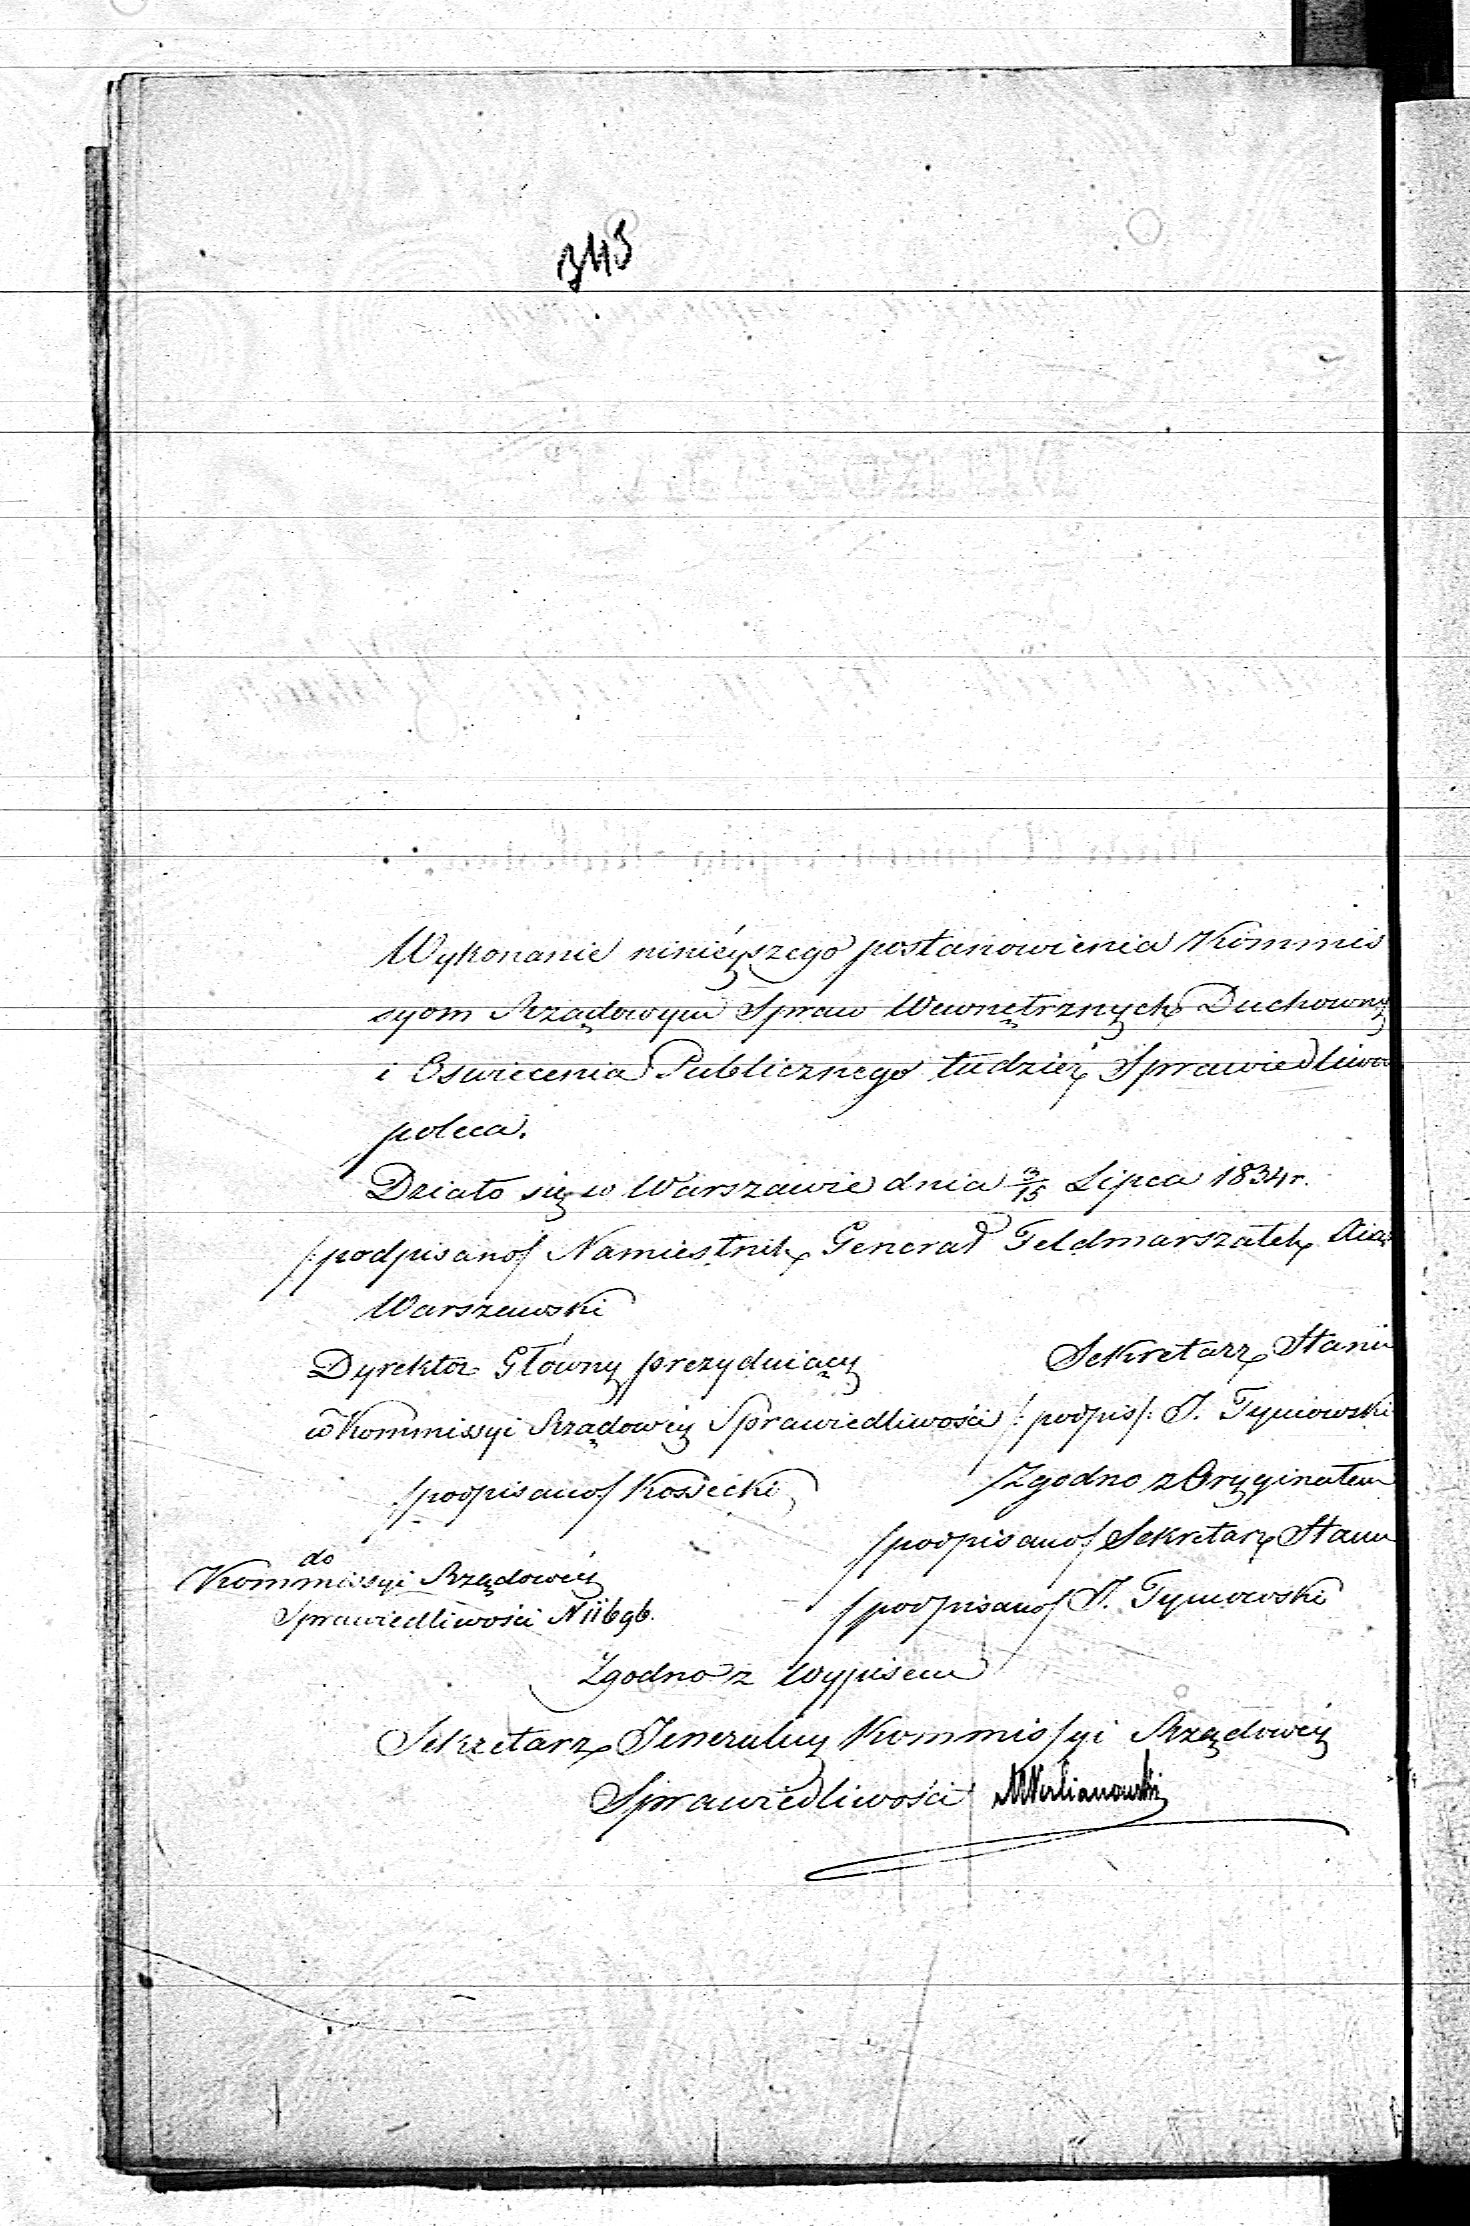 345
Wykonanie ninieyszego postanowienia Kommis
syom Rządowym Spraw Wewnętrznych Duchowny
i Oswiecenia Publicznego tudzież Sprawiedliwo
poleca.
Działo się w Warszawie dnia 3/15 Lipca 1834 r.
/:podpisano/ Namiestnik Generał Feldmarszałek Xiąż
Warszawski
Dyrektor Główny prezyduiący
Sekretarz Stanu
w Kommissyi Rządowéy Sprawiedliwości /:podpis/: J. Tymowski
/podpisano/ Kossecki
Zgodno z Oryginałem
/podpisano/ Sekretarz Stanu
do
Kommissyi Rządowéy
/podpisano/ J. Tymowski
Sprawiedliwości N 11696.
Zgodno z Wypisem
Sekretarz Jeneralny Kommissyi Rządowéy
Sprawiedliwości